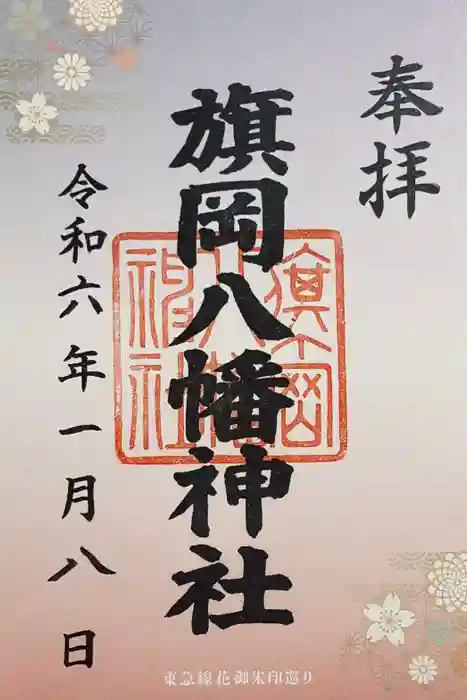 奉拝
旗岡八幡神社
令和六年一月八日
東急線花御朱印巡り